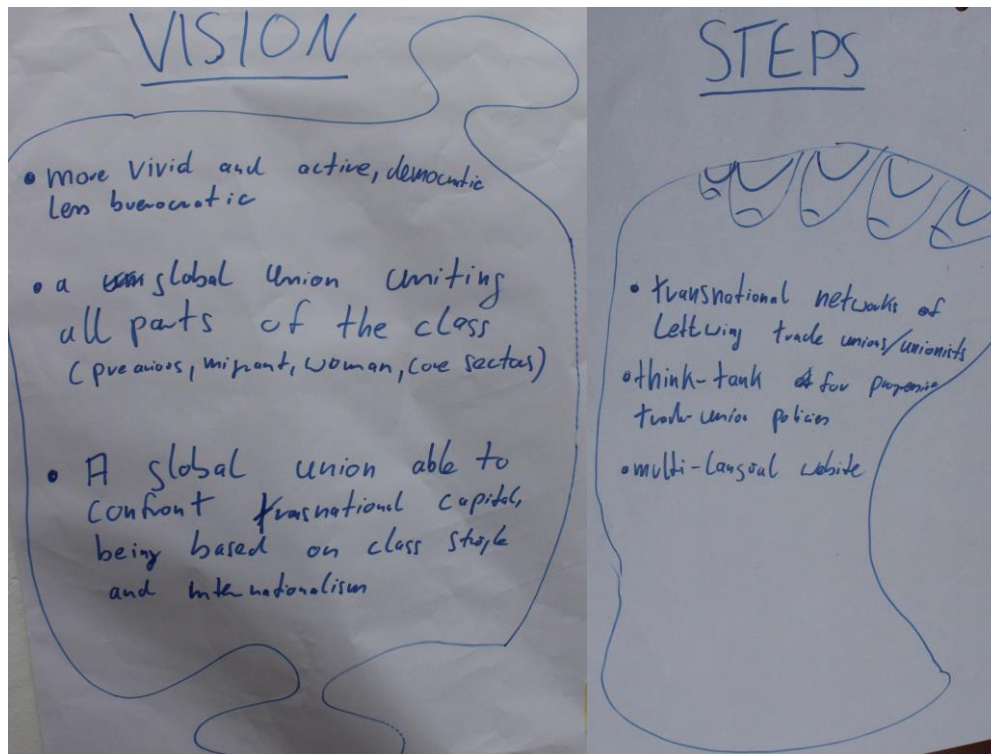 VISION
• more vivid and active, democratic
less buerocratic
• a global union uniting
all parts of the class
(precarios, migrant, woman, core sectors)
• A global union able to
confront trasnational capital,
being based on class strugle
and internationalism
STEPS
• transnational networks of
Leftwing trade unions/unionists
• think-tank for progressive
trade-union policies
• multi-langual website